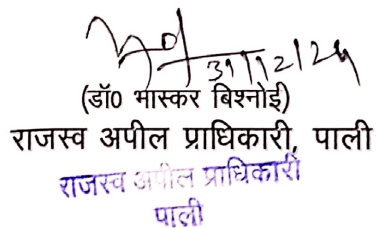 31/12/24
(डॉ0 भास्कर बिश्नोई)
राजस्व अपील प्राधिकारी, पाली
राजस्व अपील प्राधिकारी
पाली